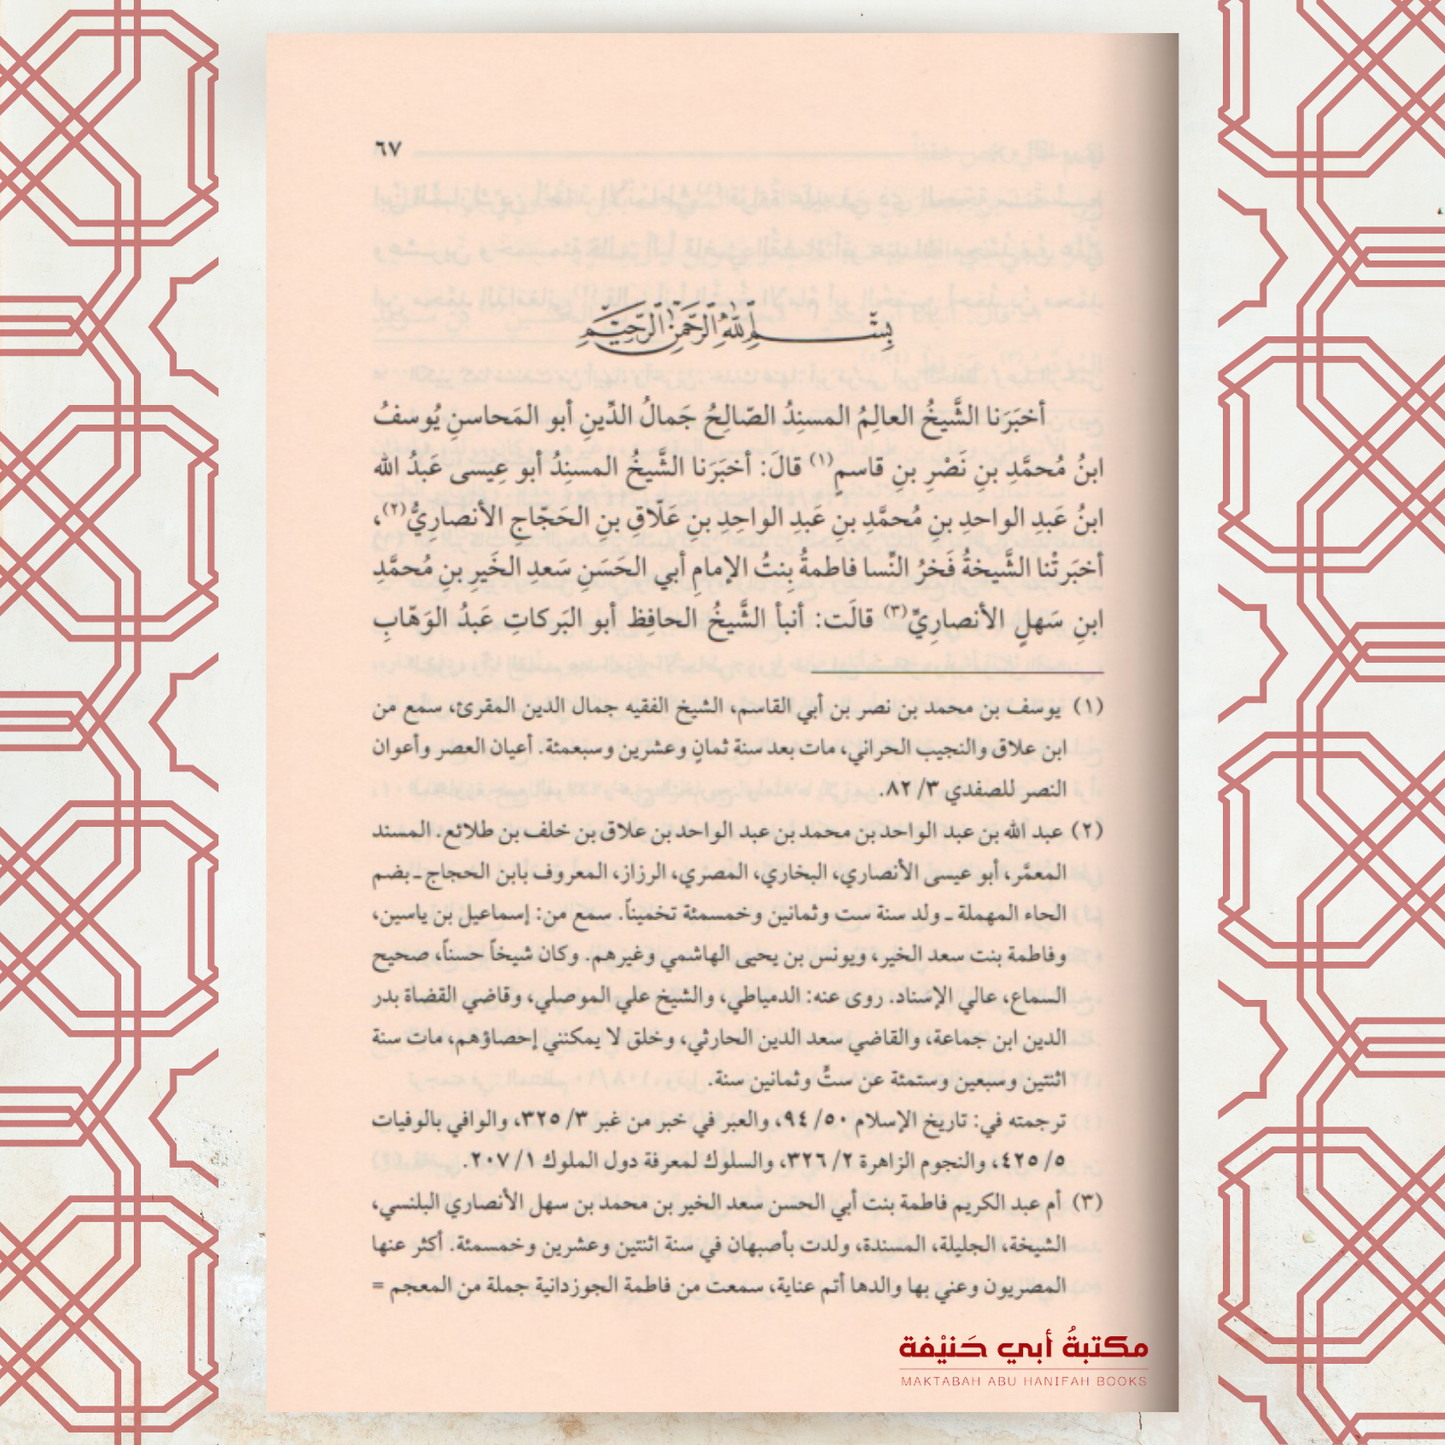 ٦٧
بِسْمِ اللهِ الرَّحْمٰنِ الرَّحِيْمِ
أخبَرَنا الشَّيخُ العالِمُ المسنِدُ الصّالِحُ جَمالُ الدِّينِ أبو المَحاسنِ يُوسفُ
ابنُ مُحمَّدِ بنِ نَصْرِ بنِ قاسمٍ(١) قالَ: أخبَرَنا الشَّيخُ المسنِدُ أبو عِيسى عَبدُ الله
ابنُ عَبدِ الواحدِ بنِ مُحمَّدِ بنِ عَبدِ الواحِدِ بنِ عَلّاقِ بنِ الحَجّاجِ الأنصارِيُّ(٢)،
أخبَرتْنا الشَّيخةُ فَخرُ النِّسا فاطمةُ بِنتُ الإمامِ أبي الحَسَنِ سَعدِ الخَيرِ بنِ مُحمَّدِ
ابنِ سَهلٍ الأنصارِيِّ(٣) قالَت: أنبأ الشَّيخُ الحافِظ أبو البَركاتِ عَبدُ الوَهّابِ
(١) يوسف بن محمد بن نصر بن أبي القاسم، الشيخ الفقيه جمال الدين المقرئ، سمع من
ابن علاق والنجيب الحراني، مات بعد سنة ثمانٍ وعشرين وسبعمئة. أعيان العصر وأعوان
النصر للصفدي ٣/ ٨٢.
(٢) عبد الله بن عبد الواحد بن محمد بن عبد الواحد بن علاق بن خلف بن طلائع. المسند
المعمَّر، أبو عيسى الأنصاري، البخاري، المصري، الرزاز، المعروف بابن الحجاج ـ بضم
الحاء المهملة ـ ولد سنة ست وثمانين وخمسمئة تخميناً. سمع من: إسماعيل بن ياسين،
وفاطمة بنت سعد الخير، ويونس بن يحيى الهاشمي وغيرهم. وكان شيخاً حسناً، صحيح
السماع، عالي الإسناد. روى عنه: الدمياطي، والشيخ علي الموصلي، وقاضي القضاة بدر
الدين ابن جماعة، والقاضي سعد الدين الحارثي، وخلق لا يمكنني إحصاؤهم، مات سنة
اثنتين وسبعين وستمئة عن ستٍّ وثمانين سنة.
ترجمته في: تاريخ الإسلام ٥٠/ ٩٤، والعبر في خبر من غبر ٣/ ٣٢٥، والوافي بالوفيات
٥/ ٤٢٥، والنجوم الزاهرة ٢/ ٣٢٦، والسلوك لمعرفة دول الملوك ١/ ٢٠٧.
(٣) أم عبد الكريم فاطمة بنت أبي الحسن سعد الخير بن محمد بن سهل الأنصاري البلنسي،
الشيخة، الجليلة، المسندة، ولدت بأصبهان في سنة اثنتين وعشرين وخمسمئة. أكثر عنها
المصريون وعني بها والدها أتم عناية، سمعت من فاطمة الجوزدانية جملة من المعجم =
مكتبةُ أبي حَنيْفة
MAKTABAH ABU HANIFAH BOOKS